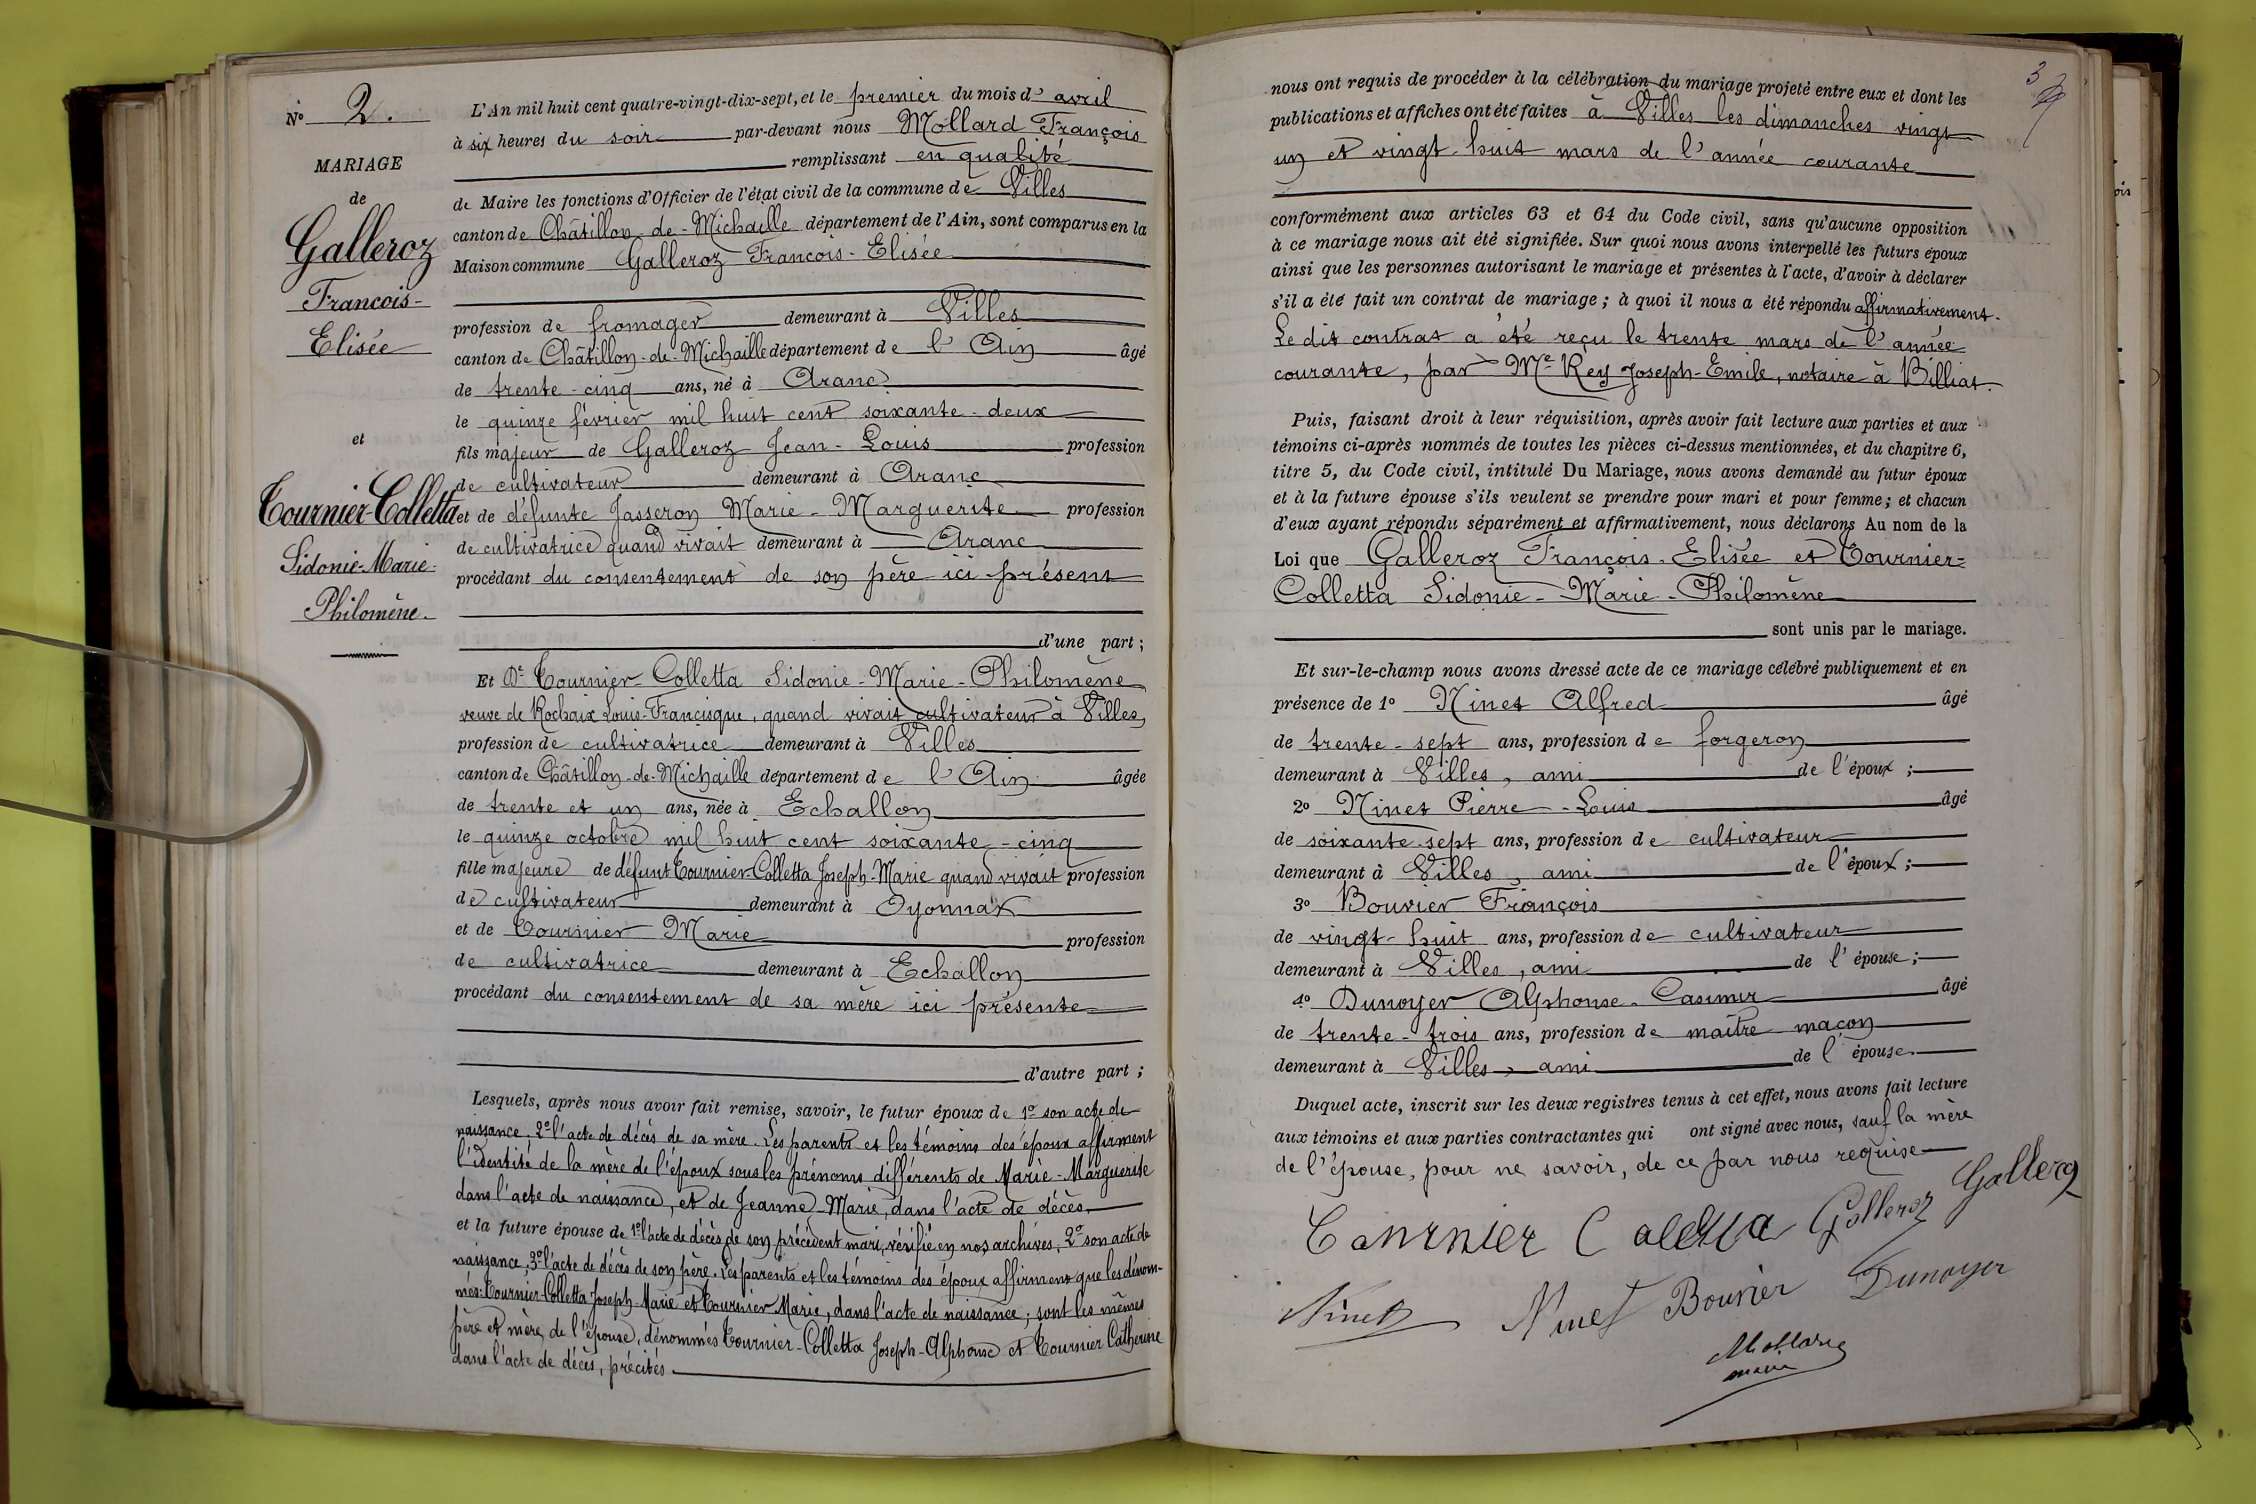 No 2.
MARIAGE
de
Galleroz
Francois-
Elisée
et
Tournier-Colletta
Sidonie-Marie-
Philomène.
L'An mil huit cent quatre-vingt-dix-sept, et le premier du mois d' avril
à six heures du soir par-devant nous Mollard François
remplissant en qualité
de Maire les fonctions d'Officier de l'état civil de la commune de Villes
canton de Châtillon-de-Michaille département de l'Ain, sont comparus en la
Maison commune Galleroz Francois-Elisée
profession de fromager demeurant à Villes
canton de Châtillon-de-Michaille département de l'Ain âgé
de trente-cinq ans, né à Aranc
le quinze février mil huit cent soixante-deux
fils majeur de Galleroz Jean-Louis profession
de cultivateur demeurant à Aranc
et de défunte Jasseron Marie-Marguerite profession
de cultivatrice quand vivait demeurant à Aranc
procédant du consentement de son père ici présent
d'une part ;
Et De Tournier-Colletta Sidonie-Marie-Philomène
veuve de Rochaix Louis-Francisque, quand vivait cultivateur à Villes,
profession de cultivatrice demeurant à Villes
canton de Châtillon-de-Michaille département de l'Ain âgée
de trente et un ans, née à Echallon
le quinze octobre mil huit cent soixante-cinq
fille majeure de défunt Tournier-Colletta Joseph-Marie quand vivait profession
de cultivateur demeurant à Oyonnax
et de Tournier Marie profession
de cultivatrice demeurant à Echallon
procédant du consentement de sa mère ici présente
d'autre part ;
Lesquels, après nous avoir fait remise, savoir, le futur époux de 1o son acte de
naissance, 2o l'acte de décès de sa mère. Les parents et les témoins des époux affirment
l'identité de la mère de l'époux sous les prénoms différents de Marie-Marguerite
dans l'acte de naissance, et de Jeanne-Marie, dans l'acte de décès,
et la future épouse de 1o l'acte de décès de son précédent mari, vérifié en nos archives, 2o son acte de
naissance, 3o l'acte de décès de son père. Les parents et les témoins des époux affirment que les dénom-
més: Tournier-Colletta Joseph-Marie et Tournier Marie, dans l'acte de naissance; sont les mêmes
père et mère, de l'épouse, dénommés Tournier-Colletta Joseph-Alphonse et Tournier Catherine
dans l'acte de décès, précités.
3
nous ont requis de procéder à la célébration du mariage projeté entre eux et dont les
publications et affiches ont été faites à Villes les dimanches vingt
un et vingt-huit mars de l'année courante
conformément aux articles 63 et 64 du Code civil, sans qu'aucune opposition
à ce mariage nous ait été signifiée. Sur quoi nous avons interpellé les futurs époux
ainsi que les personnes autorisant le mariage et présentes à l'acte, d'avoir à déclarer
s'il a été fait un contrat de mariage ; à quoi il nous a été répondu affirmativement.
Le dit contrat a été reçu le trente mars de l'année
courante, par Me Rey Joseph-Emile, notaire à Billiat.
Puis, faisant droit à leur réquisition, après avoir fait lecture aux parties et aux
témoins ci-après nommés de toutes les pièces ci-dessus mentionnées, et du chapitre 6,
titre 5, du Code civil, intitulé Du Mariage, nous avons demandé au futur époux
et à la future épouse s'ils veulent se prendre pour mari et pour femme ; et chacun
d'eux ayant répondu séparément et affirmativement, nous déclarons Au nom de la
Loi que Galleroz François-Elisée et Tournier-
Colletta Sidonie-Marie-Philomène
sont unis par le mariage.
Et sur-le-champ nous avons dressé acte de ce mariage célébré publiquement et en
présence de 1o Ninet Alfred âgé
de trente-sept ans, profession de forgeron
demeurant à Villes, ami de l'époux ;
2o Ninet Pierre-Louis âgé
de soixante-sept ans, profession de cultivateur
demeurant à Villes, ami de l'époux ;
3o Bouvier François
de vingt-huit ans, profession de cultivateur
demeurant à Villes, ami de l'épouse ;
4o Dunoyer Alphonse-Casimir âgé
de trente-trois ans, profession de maître maçon
demeurant à Villes, ami de l'épouse.
Duquel acte, inscrit sur les deux registres tenus à cet effet, nous avons fait lecture
aux témoins et aux parties contractantes qui ont signé avec nous, sauf la mère
de l'épouse, pour ne savoir, de ce par nous requise
Tournier Galleroz Galleroz
Ninet Ninet Bouvier Dunoyer
Mollard
maire